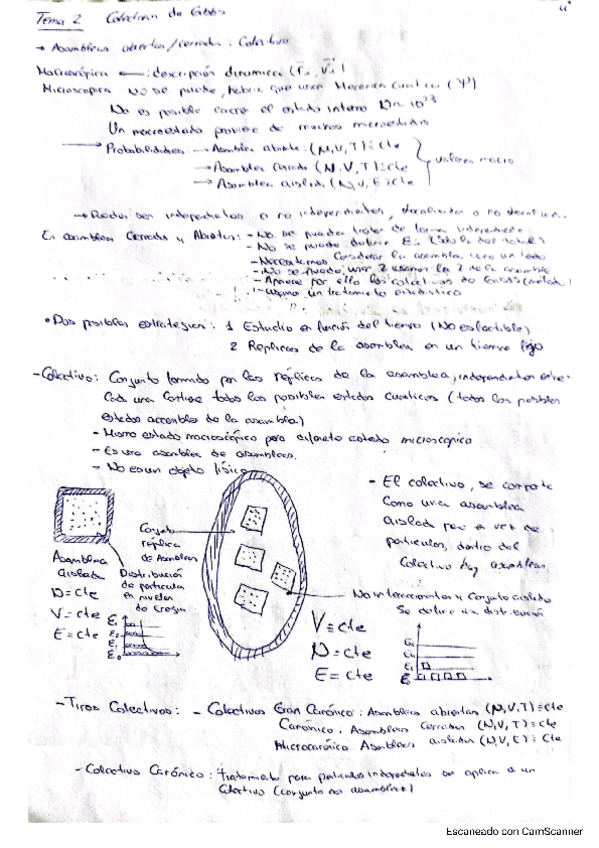 Tema 2 Colectivos de Gibbs
→ Asambleas abiertas/cerradas: Colectivo
Macroscópica : descripción dinámica
Microscópica No se puede, habría que usar Mecánica Cuántica (Ψ)
No es posible el estado interno N~10²³
Un macroestado proviene de muchos microestados
→ Probabilidades → Asamblea abierta: (N,V,T)≡cte
→ Asamblea cerrada (N,V,T)≡cte valores macro
→ Asamblea aislada (N,V,E)≡cte
→ Pueden ser independientes o no independientes, localizadas o no
En asambleas Cerradas y Abiertas: - No se puede tratar de forma independiente
- No se puede definir
- Necesitamos considerar la asamblea como un todo
- No se puede usar z usamos la Z de la asamblea
- Aparece por ello los colectivos de Gibbs
- usamos un tratamiento estadístico
• Dos posibles estrategias: 1 Estudio en función del tiempo (No es factible)
2 Replicas de la asamblea en un tiempo fijo
- Colectivo: Conjunto formado por las réplicas de la asamblea, independientes entre
Cada una contiene todos los posibles estados cuánticos (todos los posibles
estados accesibles de la asamblea)
- Mismo estado macroscópico pero diferente estado microscópico
- Es una asamblea de asambleas.
- No es un objeto físico
- El colectivo, se comporta
como una asamblea
aislada pero en vez de
partículas, dentro del
colectivo hay asambleas.
Conjunto
réplica
de Asambleas
Asamblea
aislada
N=cte
V=cte
E=cte
Distribución
de partículas
en niveles
de energía
No interaccionan y Conjunto aislado
Se define una distribución
V≡cte
N=cte
E=cte
- Tipos Colectivos: - Colectivos Gran Canónico: Asambleas abiertas (N,V,T)≡cte
Canónico: Asambleas Cerradas (N,V,T)≡cte
Microcanónico Asambleas aisladas (N,V,E)≡cte
- Colectivo Canónico: Tratamiento para partículas independientes se aplica a un
Colectivo (conjunto de asambleas)
Escaneado con CamScanner